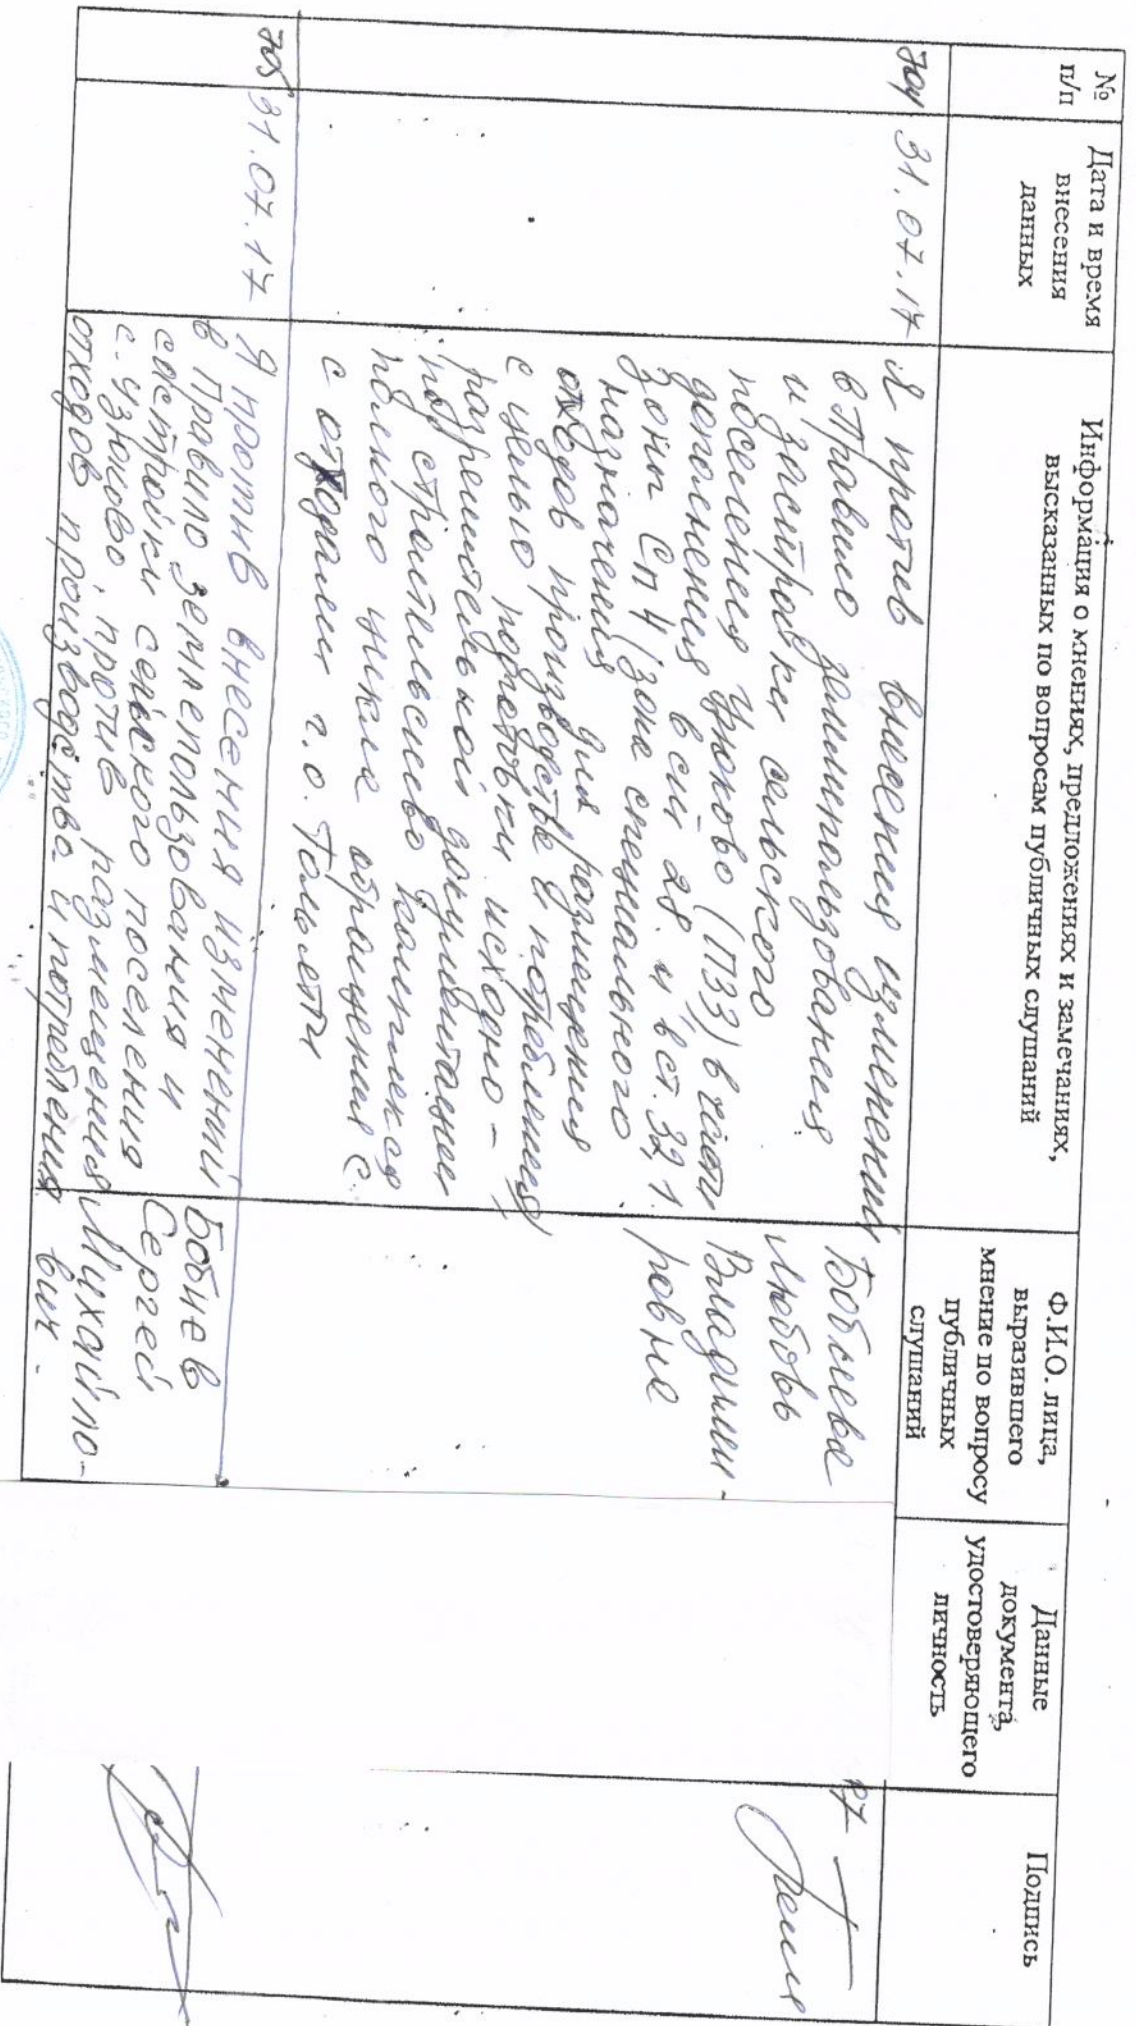 № п/п
Дата и время внесения данных
Информация о мнениях, предложениях и замечаниях, высказанных по вопросам публичных слушаний
Ф.И.О. лица, выразившего мнение по вопросу публичных слушаний
Данные документа, удостоверяющего личность
Подпись
31.07.17
Я против внесения изменений
в Правило землепользования
и застройки сельского
поселения Узюково (ПЗЗ) в части
дополнения в ст 28 и в ст. 32,1.
зоны Сп 4 (зона специального
назначения для размещения
отходов производства и потребления)
с целью подготовки исходно-
разрешительной документации
под строительство комплекса
полного цикла обращения с
с отходами г.о. Тольятти
Бобнева
Любовь
Владими-
ровна
31.07.17
Я против внесения изменений
в Правило землепользования и
састройки сельского поселения
с. Узюково, против размещения
отходов производства и потребления
Бобнев
Сергей
Михайло-
вич.